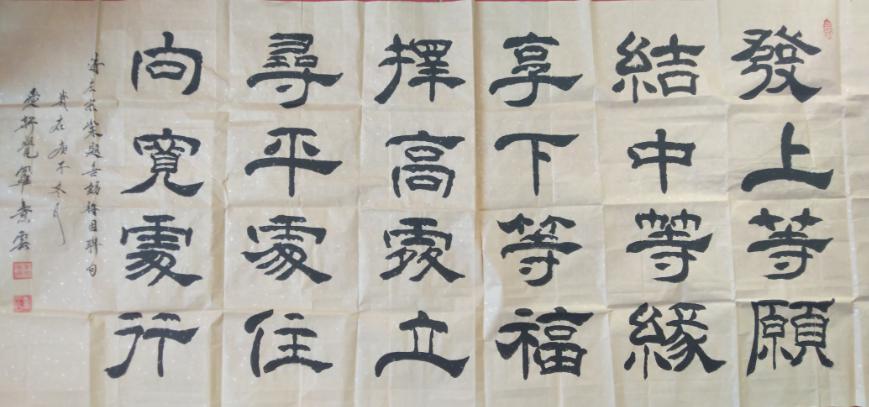 發上等願
結中等緣
享下等福
擇高處立
尋平處住
向寬處行
清左宗棠題無錫梅園聯句
歲在庚子冬月
覺羅